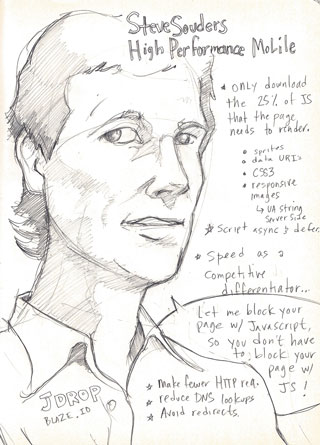 SteveSouders
High Performance Mobile
* Only download
the 25% of JS
that the page
needs to render.
sprites
data URIs
CSS3
responsive
images
↳ UA string
server side
* Script async & defer
* Speed as a
competitive
differentiator...
Let me block your
page w/ Javascript,
so you don't have
to block your
page w/
JS!
* make fewer HTTP req.
* reduce DNS lookups
* Avoid redirects.
JDROP
BLAZE.IO